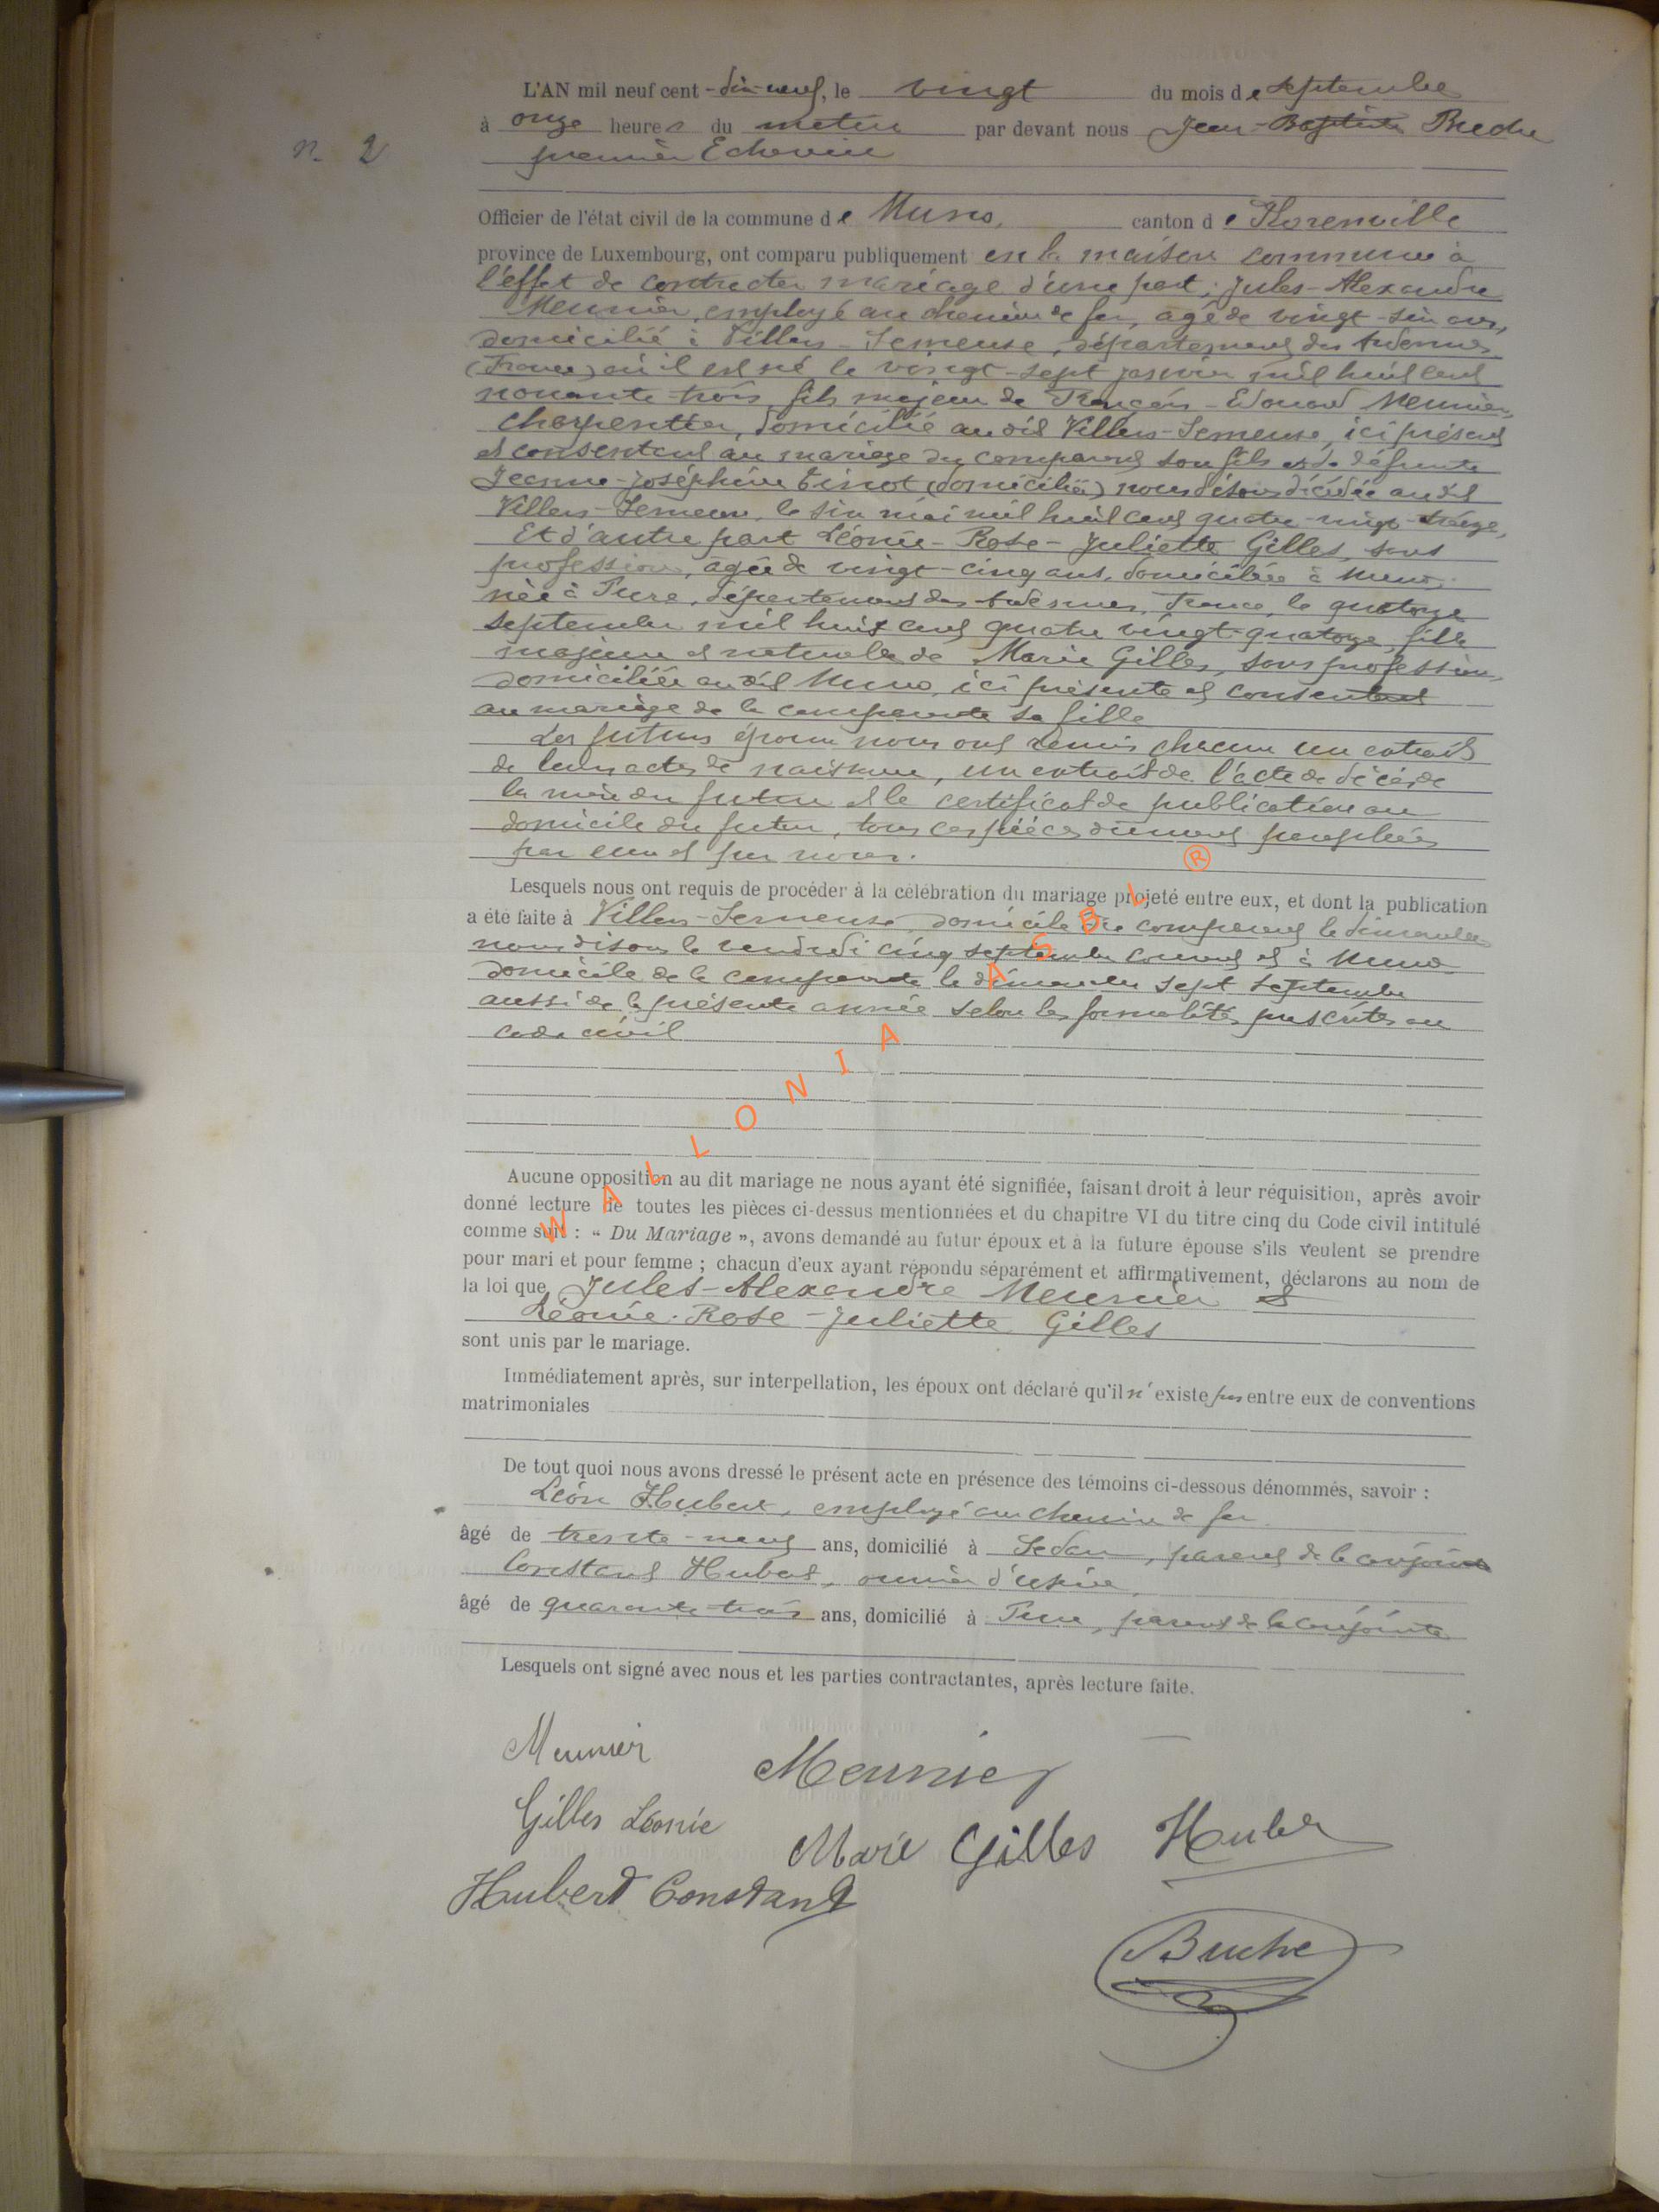 L'AN mil neuf cent - dix-neuf, le vingt du mois de septembre
à onze heures du matin par devant nous Jean-Baptiste Buche
n. 2
premier Echevin
Officier de l'état civil de la commune de Muno, canton de Florenville
province de Luxembourg, ont comparu publiquement en la maison commune à
l'effet de contracter mariage d'une part, Jules-Alexandre
Meunier, employé au chemin de fer, âgé de vingt-six ans,
domicilié à Villers-Semeuse, département des Ardennes
(France) où il est né le vingt-sept janvier mil huit cent
nonante-trois, fils majeur de François-Edouard Meunier,
charpentier, domicilié au dit Villers-Semeuse, ici présent
et consentant au mariage du comparant son fils et de défunte
Jeanne-Joséphine Tinot (domiciliée) nous disons décédée au dit
Villers-Semeuse, le six mai mil huit cent quatre-vingt-treize,
Et d'autre part Léonie-Rose-Juliette Gilles, sans
profession, âgée de vingt-cinq ans, domiciliée à Muno,
née à Pure, département des Ardennes, France, le quatorze
septembre mil huit cent quatre vingt-quatorze, fille
majeure et naturelle de Marie Gilles, sans profession,
domiciliée au dit Muno, ici présente et consentant
au mariage de la comparante sa fille
Les futurs époux nous ont remis chacun un extrait
de leurs actes de naissance, un extrait de l'acte de décès de
la mère du futur et le certificat de publication au
domicile du futur, tous ces pièces dûment paraphées
par eux et par nous.
Lesquels nous ont requis de procéder à la célébration du mariage projeté entre eux, et dont la publication
a été faite à Villers-Semeuse domicile du comparant le dimanche
nous disons le vendredi cinq septembre courant et à Muno
domicile de la comparante le dimanche sept septembre
aussi de la présente année selon les formalités prescrites au
code civil
WALLONIA ASBL ®
Aucune opposition au dit mariage ne nous ayant été signifiée, faisant droit à leur réquisition, après avoir
donné lecture de toutes les pièces ci-dessus mentionnées et du chapitre VI du titre cinq du Code civil intitulé
comme suit : « Du Mariage », avons demandé au futur époux et à la future épouse s'ils veulent se prendre
pour mari et pour femme ; chacun d'eux ayant répondu séparément et affirmativement, déclarons au nom de
la loi que Jules-Alexandre Meunier et
Léonie-Rose-Juliette Gilles
sont unis par le mariage.
Immédiatement après, sur interpellation, les époux ont déclaré qu'il n'existe pas entre eux de conventions
matrimoniales
De tout quoi nous avons dressé le présent acte en présence des témoins ci-dessous dénommés, savoir :
Léon Hubert, employé au chemin de fer
âgé de trente-neuf ans, domicilié à Sedan, parent de la conjointe
Constant Hubert, ouvrier d'usine,
âgé de quarante-trois ans, domicilié à Pure, parent de la conjointe
Lesquels ont signé avec nous et les parties contractantes, après lecture faite.
Meunier Meunier
Gilles Léonie Marie Gilles Hubert
Hubert Constant
Buche